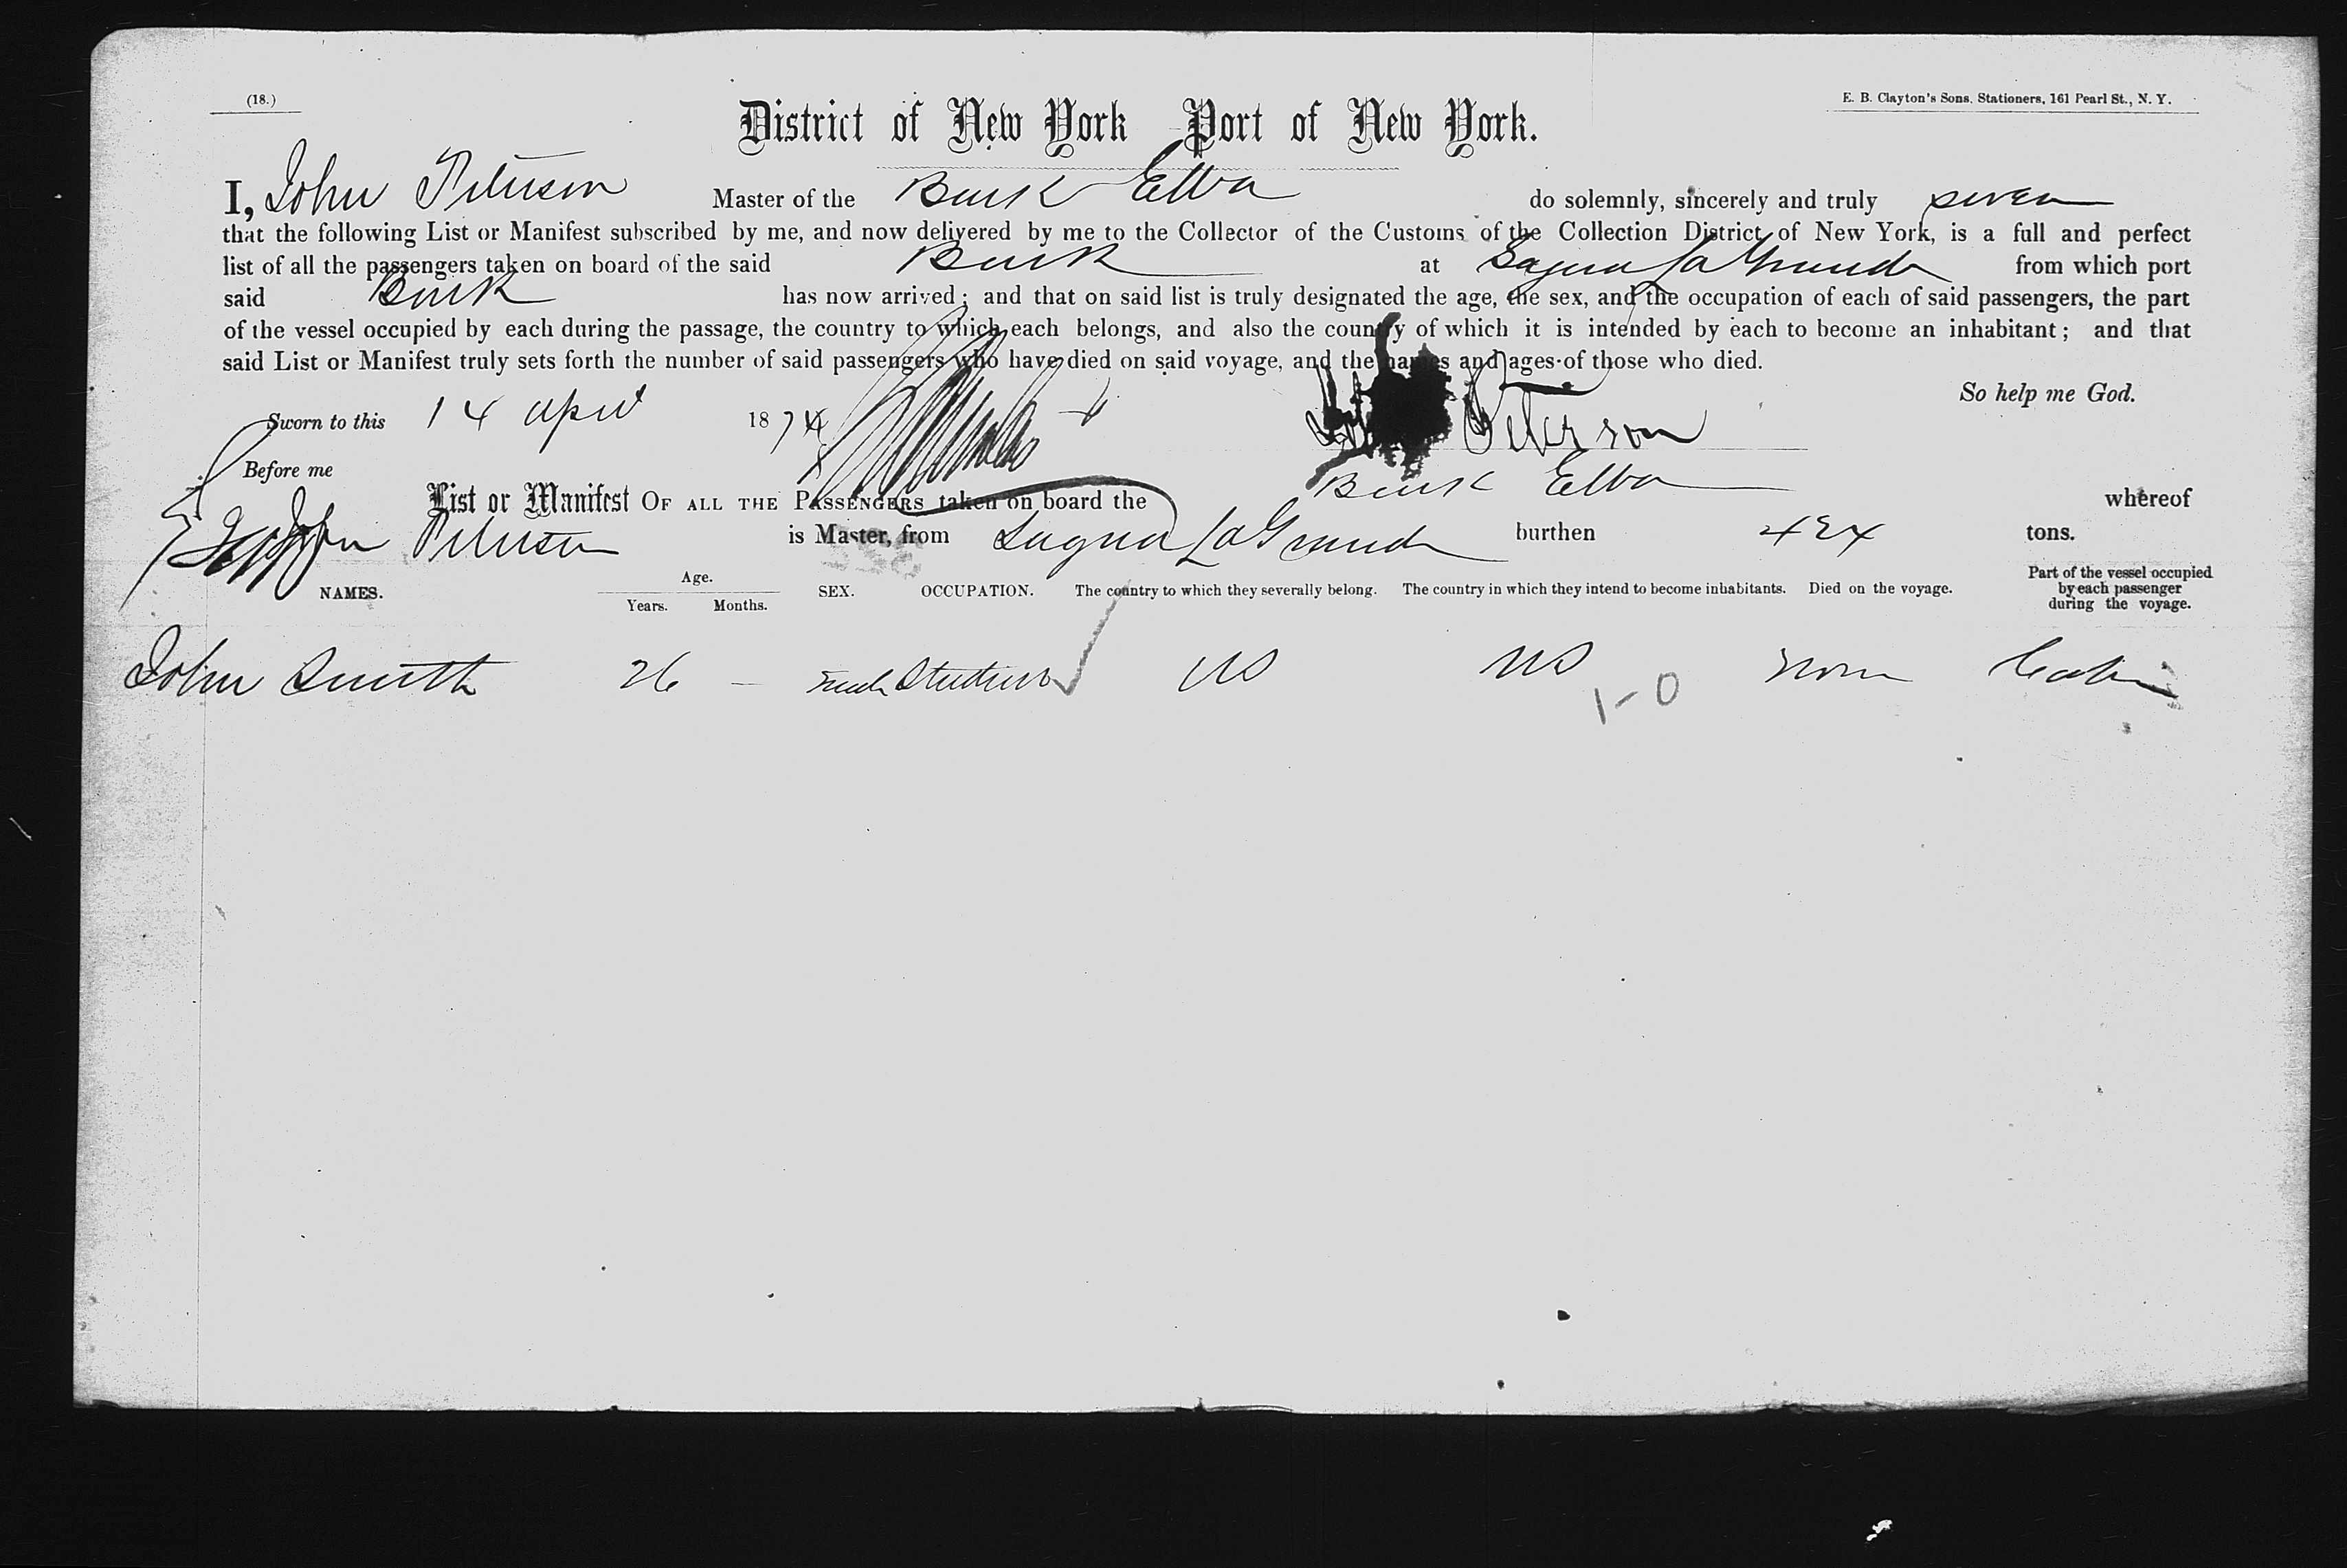 (18.)
E. B. Clayton's Sons, Stationers, 161 Pearl St., N. Y.
District of New York Port of New York.
I, John Peterson Master of the Bark Elba do solemnly, sincerely and truly swear
that the following List or Manifest subscribed by me, and now delivered by me to the Collector of the Customs of the Collection District of New York, is a full and perfect
list of all the passengers taken on board of the said Bark at Sagua La Grande from which port
said Bark has now arrived; and that on said list is truly designated the age, the sex, and the occupation of each of said passengers, the part
of the vessel occupied by each during the passage, the country to which each belongs, and also the country of which it is intended by each to become an inhabitant; and that
said List or Manifest truly sets forth the number of said passengers who have died on said voyage, and the names and ages of those who died.
So help me God.
Sworn to this 14 April 1874 Peterson
Before me
List or Manifest OF ALL THE PASSENGERS taken on board the Bark Elba whereof
John Peterson is Master, from Sagua La Grande burthen 424 tons.
NAMES. Age. Years. Months. SEX. OCCUPATION. The country to which they severally belong. The country in which they intend to become inhabitants. Died on the voyage. Part of the vessel occupied by each passenger during the voyage.
John Smith 26 — male US US none Cabin
1-0